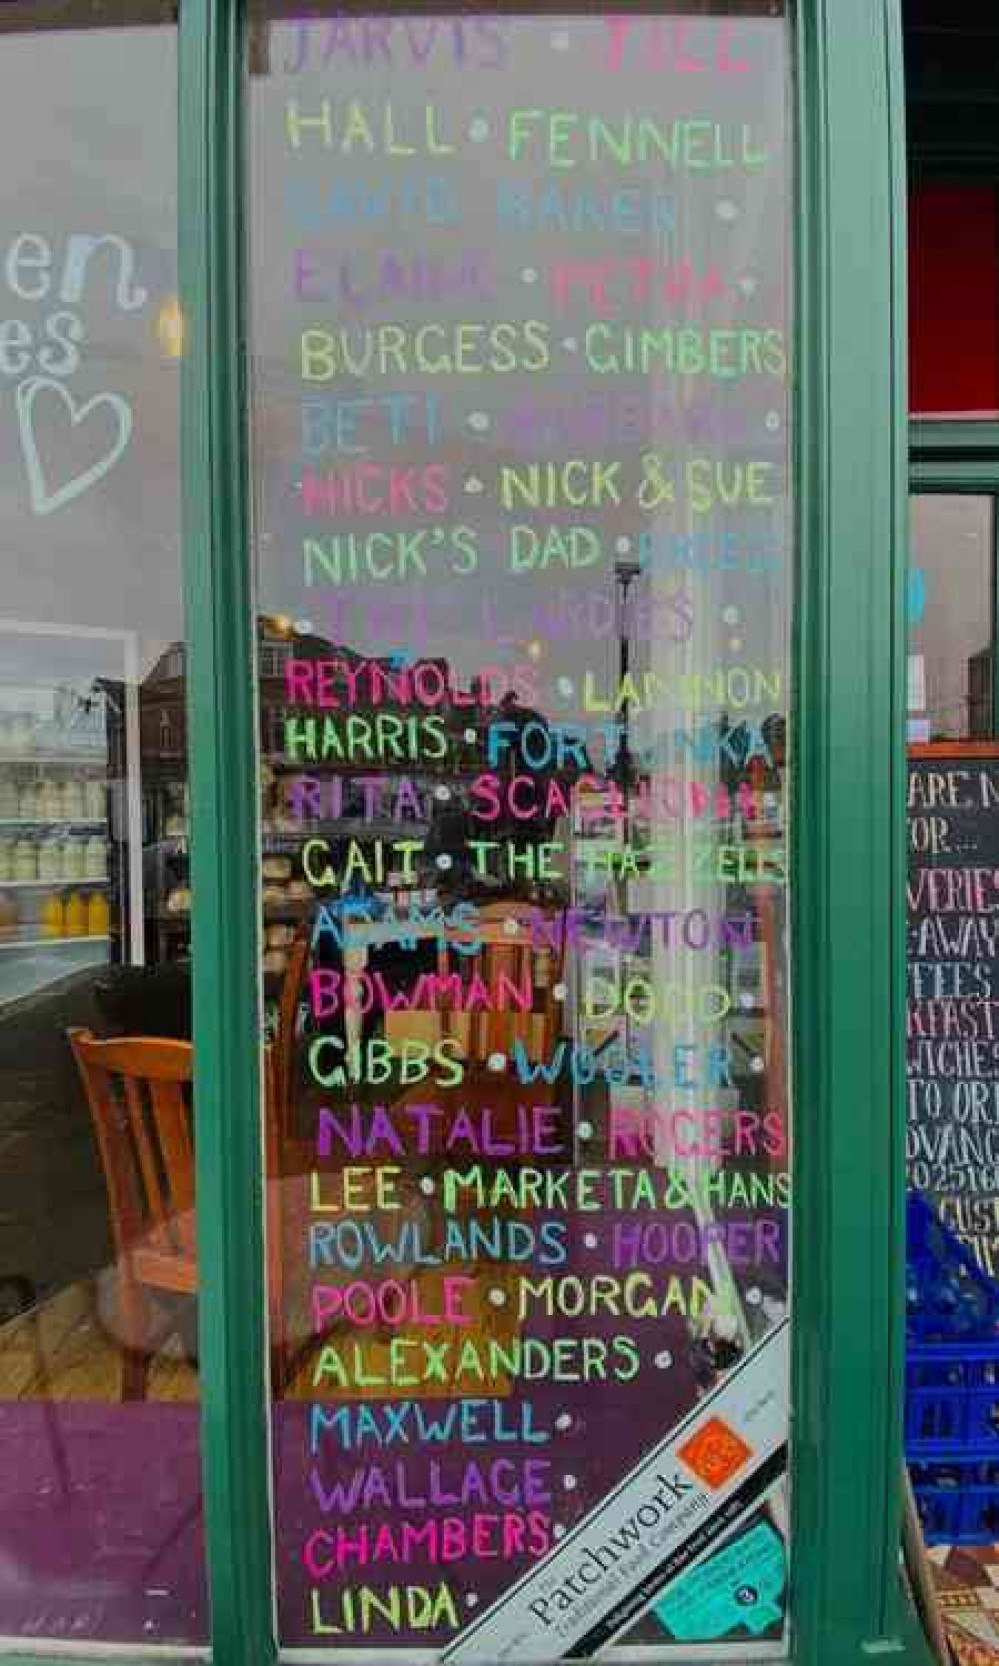 en
es
JARVIS · TILL
HALL · FENNELL
DAVID BAKER ·
ELAINE · PETRA ·
BURGESS · GIMBERS
BETI ·
HICKS · NICK & SUE
NICK'S DAD ·
· THE LANDES ·
REYNOLDS · LANNON
HARRIS ·
RITA ·
GAIT · THE HAZZELLS
ADAMS · NEWTON
BOWMAN · DODD ·
GIBBS · WOOLER ·
NATALIE · ROGERS
LEE · MARKETA & HANS
ROWLANDS · HOOPER
POOLE · MORGAN ·
ALEXANDERS ·
MAXWELL ·
WALLACE ·
CHAMBERS ·
LINDA ·
The
Patchwork
Traditional Food Company
ARE N
OR...
VERIES
-AWAY
FFEES
KFAST
WICHES
TO OR
DVANC
CUST